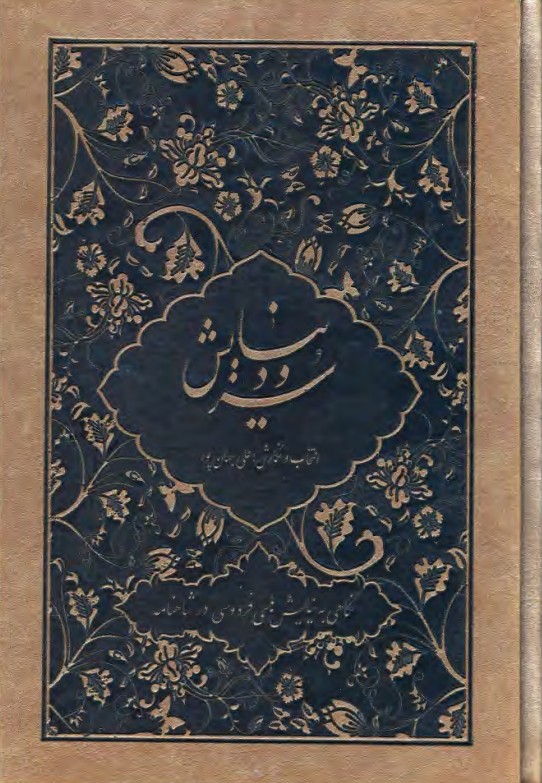 سرود نیایش
انتخاب و نگارش: علی جهان پور
نگاهی به نیایش های فردوسی در شاهنامه